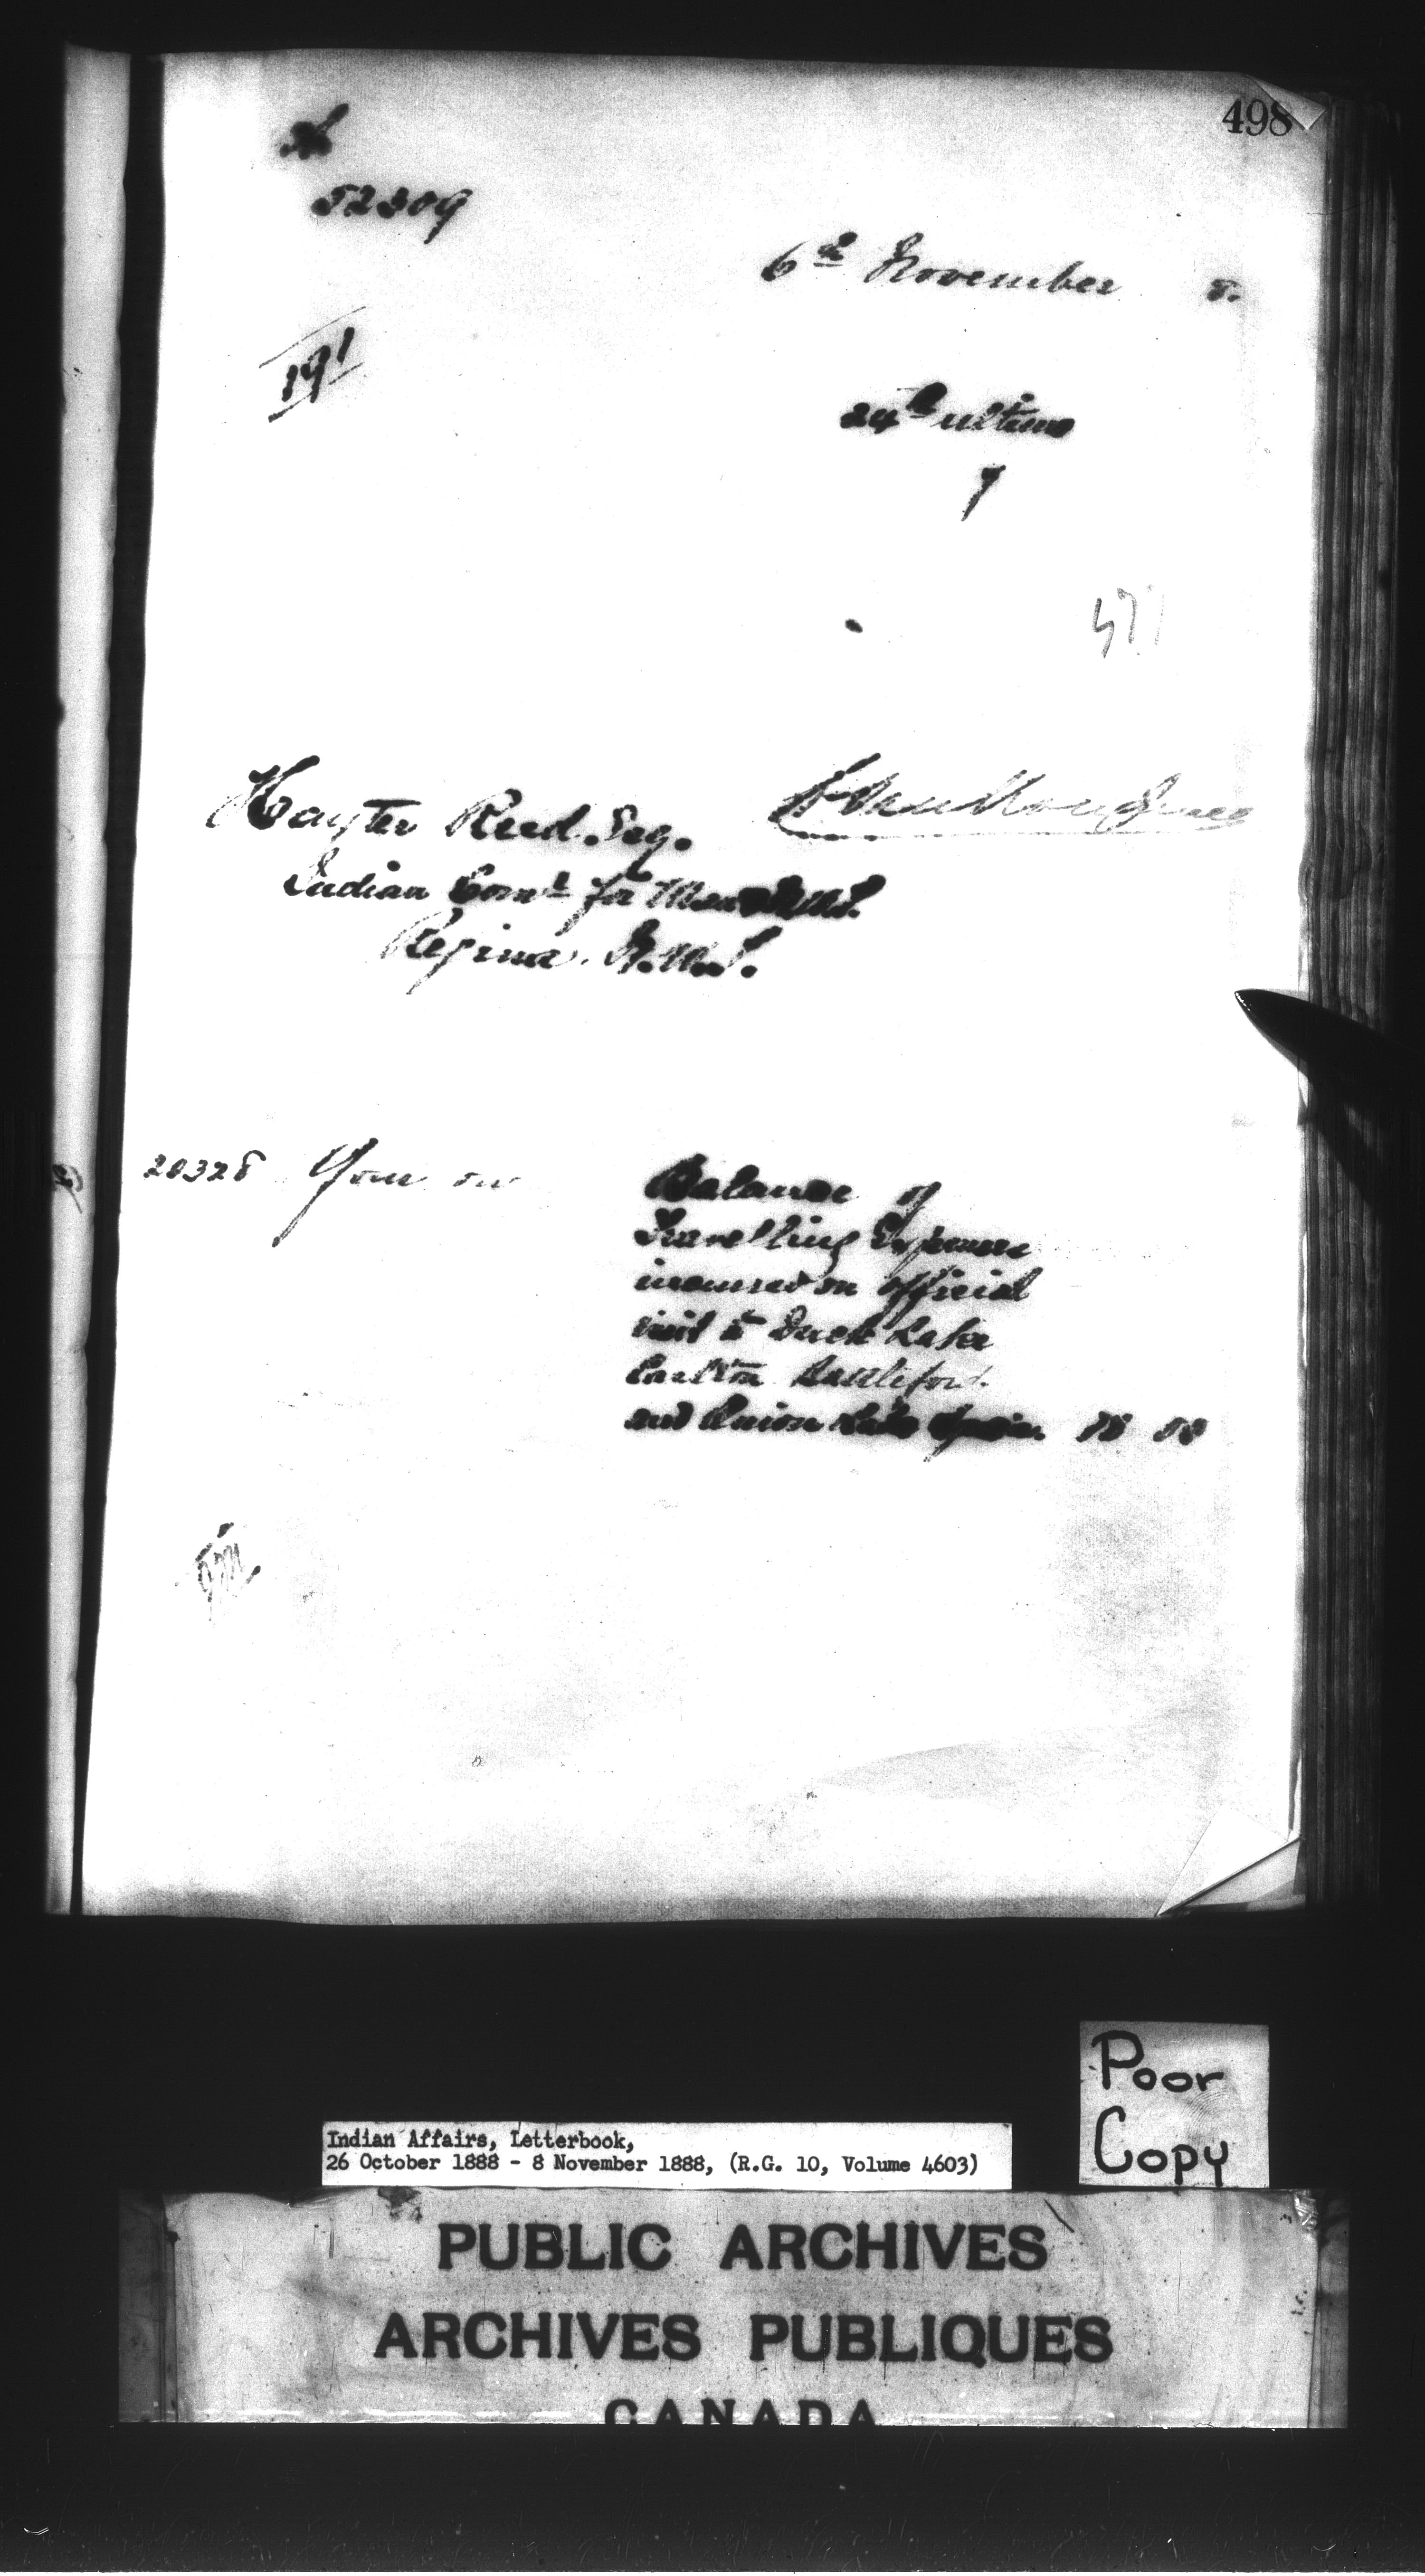 498
52309
6th November 8.
191
24th ultimo
7
Hayter Reed Esq.
L. Vankoughnet
Indian Comr for Man & N.W.T.
Regina. N.W.T.
20328 Your on
Balance of
Travelling Expenses
incurred on official
visit to Duck Lake
Carlton Battleford
and Onion Lake 18 00
Poor
Copy
Indian Affairs, Letterbook,
26 October 1888 - 8 November 1888, (R.G. 10, Volume 4603)
PUBLIC ARCHIVES
ARCHIVES PUBLIQUES
CANADA